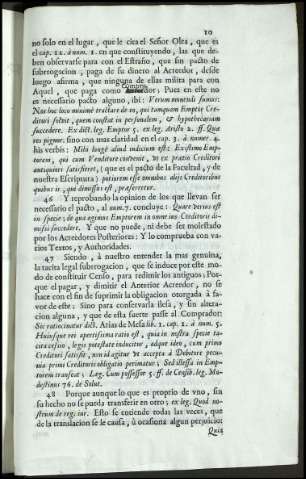 10
no solo en el lugar, que le cita el Señor Olea, que es
el cap. 12. à num. 1. en que constituyendo, las que de-
ben observarse para con el Estraño, que sin pacto de
subrogacion, paga de su dinero al Acreedor, desde
luego afirma, que ninguna de ellas milita para con
Comprador
Aquel, que paga como; Pues en este no
es necessario pacto alguno, ibi: Verùm monendi sumus:
Nos hoc loco minimè tractare de eo, qui tanquam Emptor Cre-
ditori solvit, quem constat in personalem, & hypothecariam
succedere. Ex dict. leg. Emptor 5. ex leg. dicta 2. ff. Quæ
res pignor. sino con mas claridad en el cap. 3. à numer. 4.
his verbis: Mihi longè aliud iudicium est: Existimo Emp-
torem, qui cum Venditore convenit, ut ex pretio Creditori
antiquiori satisfieret, (que es el pacto de la Facultad, y de
nuestra Escriptura) potiorem esse omnibus alijs Creditoribus
quibus is, qui dimissus est, præferretur.
46 Y reprobando la opinion de los que llevan ser
necessario el pacto, al num. 7. concluye: Quare verius est
in specie; de qua agimus Emptorem in omne ius Creditoris di-
missi succedere. Y que no puede, ni debe ser molestado
por los Acreedores Posteriores; Y lo comprueba con va-
rios Textos, y Authoridades.
47 Siendo, à nuestro entender la mas genuina,
la tacita legal subrogacion, que se induce por este mo-
do de constituir Censo, para redimir los antiguos: Por-
que el pagar, y dimitir el Anterior Acreedor, no se
hace con el fin de suprimir la obligacion otorgada à fa-
vor de este: Sino para conservarla ilesa, y sin altera-
cion alguna, y que de esta suerte passe al Comprador:
Sic ratiocinatur dict. Arias de Mesa lib. 1. cap. 1. à num. 5.
Huiusque rei apertissima ratio est, quia in nostra specie ta-
cita cessio, legis potestate inducitur, adque ideo, cum primo
Creditori satisfit, non id agitur ut accepta à Debitore pecu-
nia primi Creditoris obligatio perimatur; Sed illæssa in Emp-
torem transeat; Leg. Cum possessor 5. ff. de Censib. leg. Mo-
destinus 76. de Solut.
48 Porque aunque lo que es proprio de vno, sin
su hecho no se pueda transferir en otro; ex leg. Quod no-
strum de reg. iur. Esto se entiende todas las veces, que
de la translacion se le causa, ù ocasiona algun perjuicio:
Quia